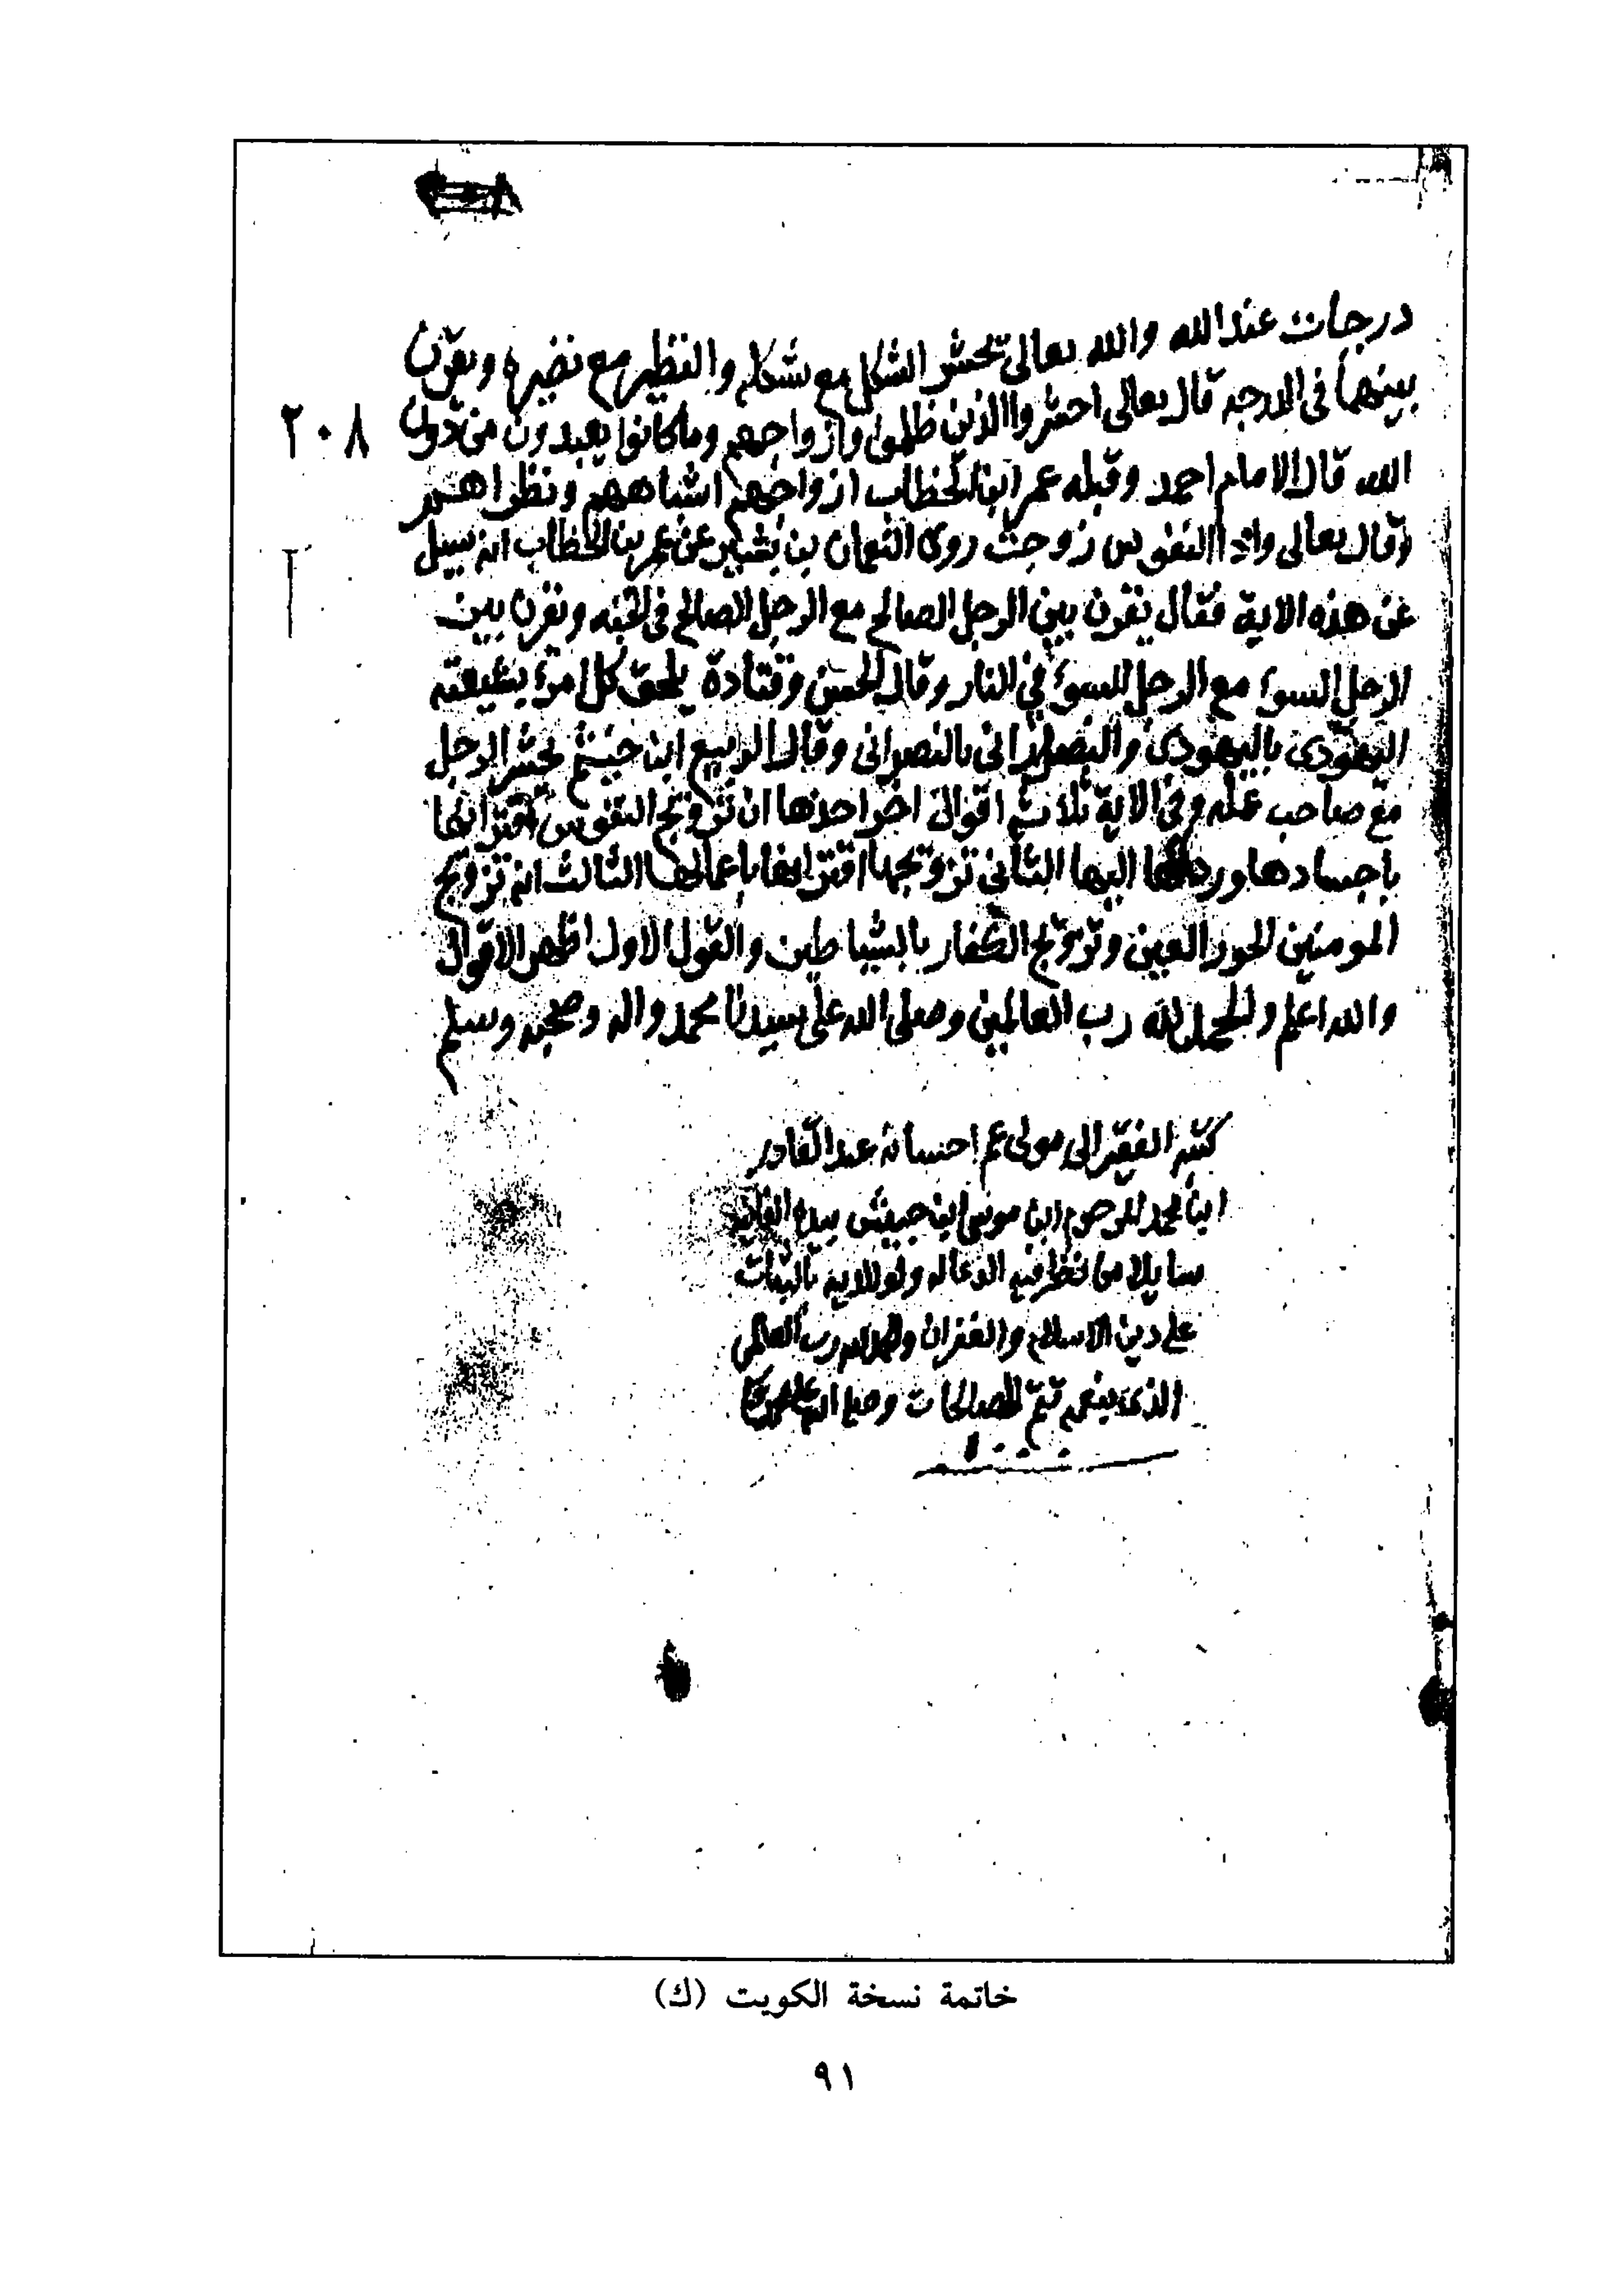 درجات عند الله والله تعالى يحشر الشكل مع شكله والنظير مع نضيره ويقرن
بينهما في الدرجه قال تعالى احشروا الذين ظلموا وازواجهم وما كانوا يعبدون من دون
٢٠٨
الله قال الامام احمد وقبله عمر ابن الخطاب ازواجهم اشباههم ونظراهم
وقال تعالى واذا النفوس زوجت روى النعمان بن بشير عن عمر بن الخطاب انه سيل
عن هذه الاية فقال يقرن بين الرجل الصالح مع الرجل الصالح في الجنه ويقرن بين
الرجل السوء مع الرجل السوء في النار وقال الحسن وقتادة يلحق كل امرء بشيعته
اليهودى باليهودى والنصرانى بالنصرانى وقال الربيع ابن خيثم يحشر الرجل
مع صاحب عمله وفي الاية ثلاثة اقوال اخر احدها ان تزويج النفوس اقترانها
باجسادها وردها اليها الثانى تزويجها اقترانها باعمالها الثالث انه تزويج
المومنين الحور العين وتزويج الكفار بالشياطين والقول الاول اظهر الاقوال
والله اعلم والحمد لله رب العالمين وصلى الله على سيدنا محمد واله وصحبه وسلم
كتبه الفقير الى مولى عم احسانه عبد القادر
ابن محمد المرحوم ابن موسى ابن حبيش بيده الفانيه
سايلا من نظر فيه الدعا له ولوالديه بالثبات
على دين الاسلام والغفران والحمد لله رب العالمين
الذى بنعمه تتم الصالحات وصلى الله على
خاتمة نسخة الكويت (ك)
٩١